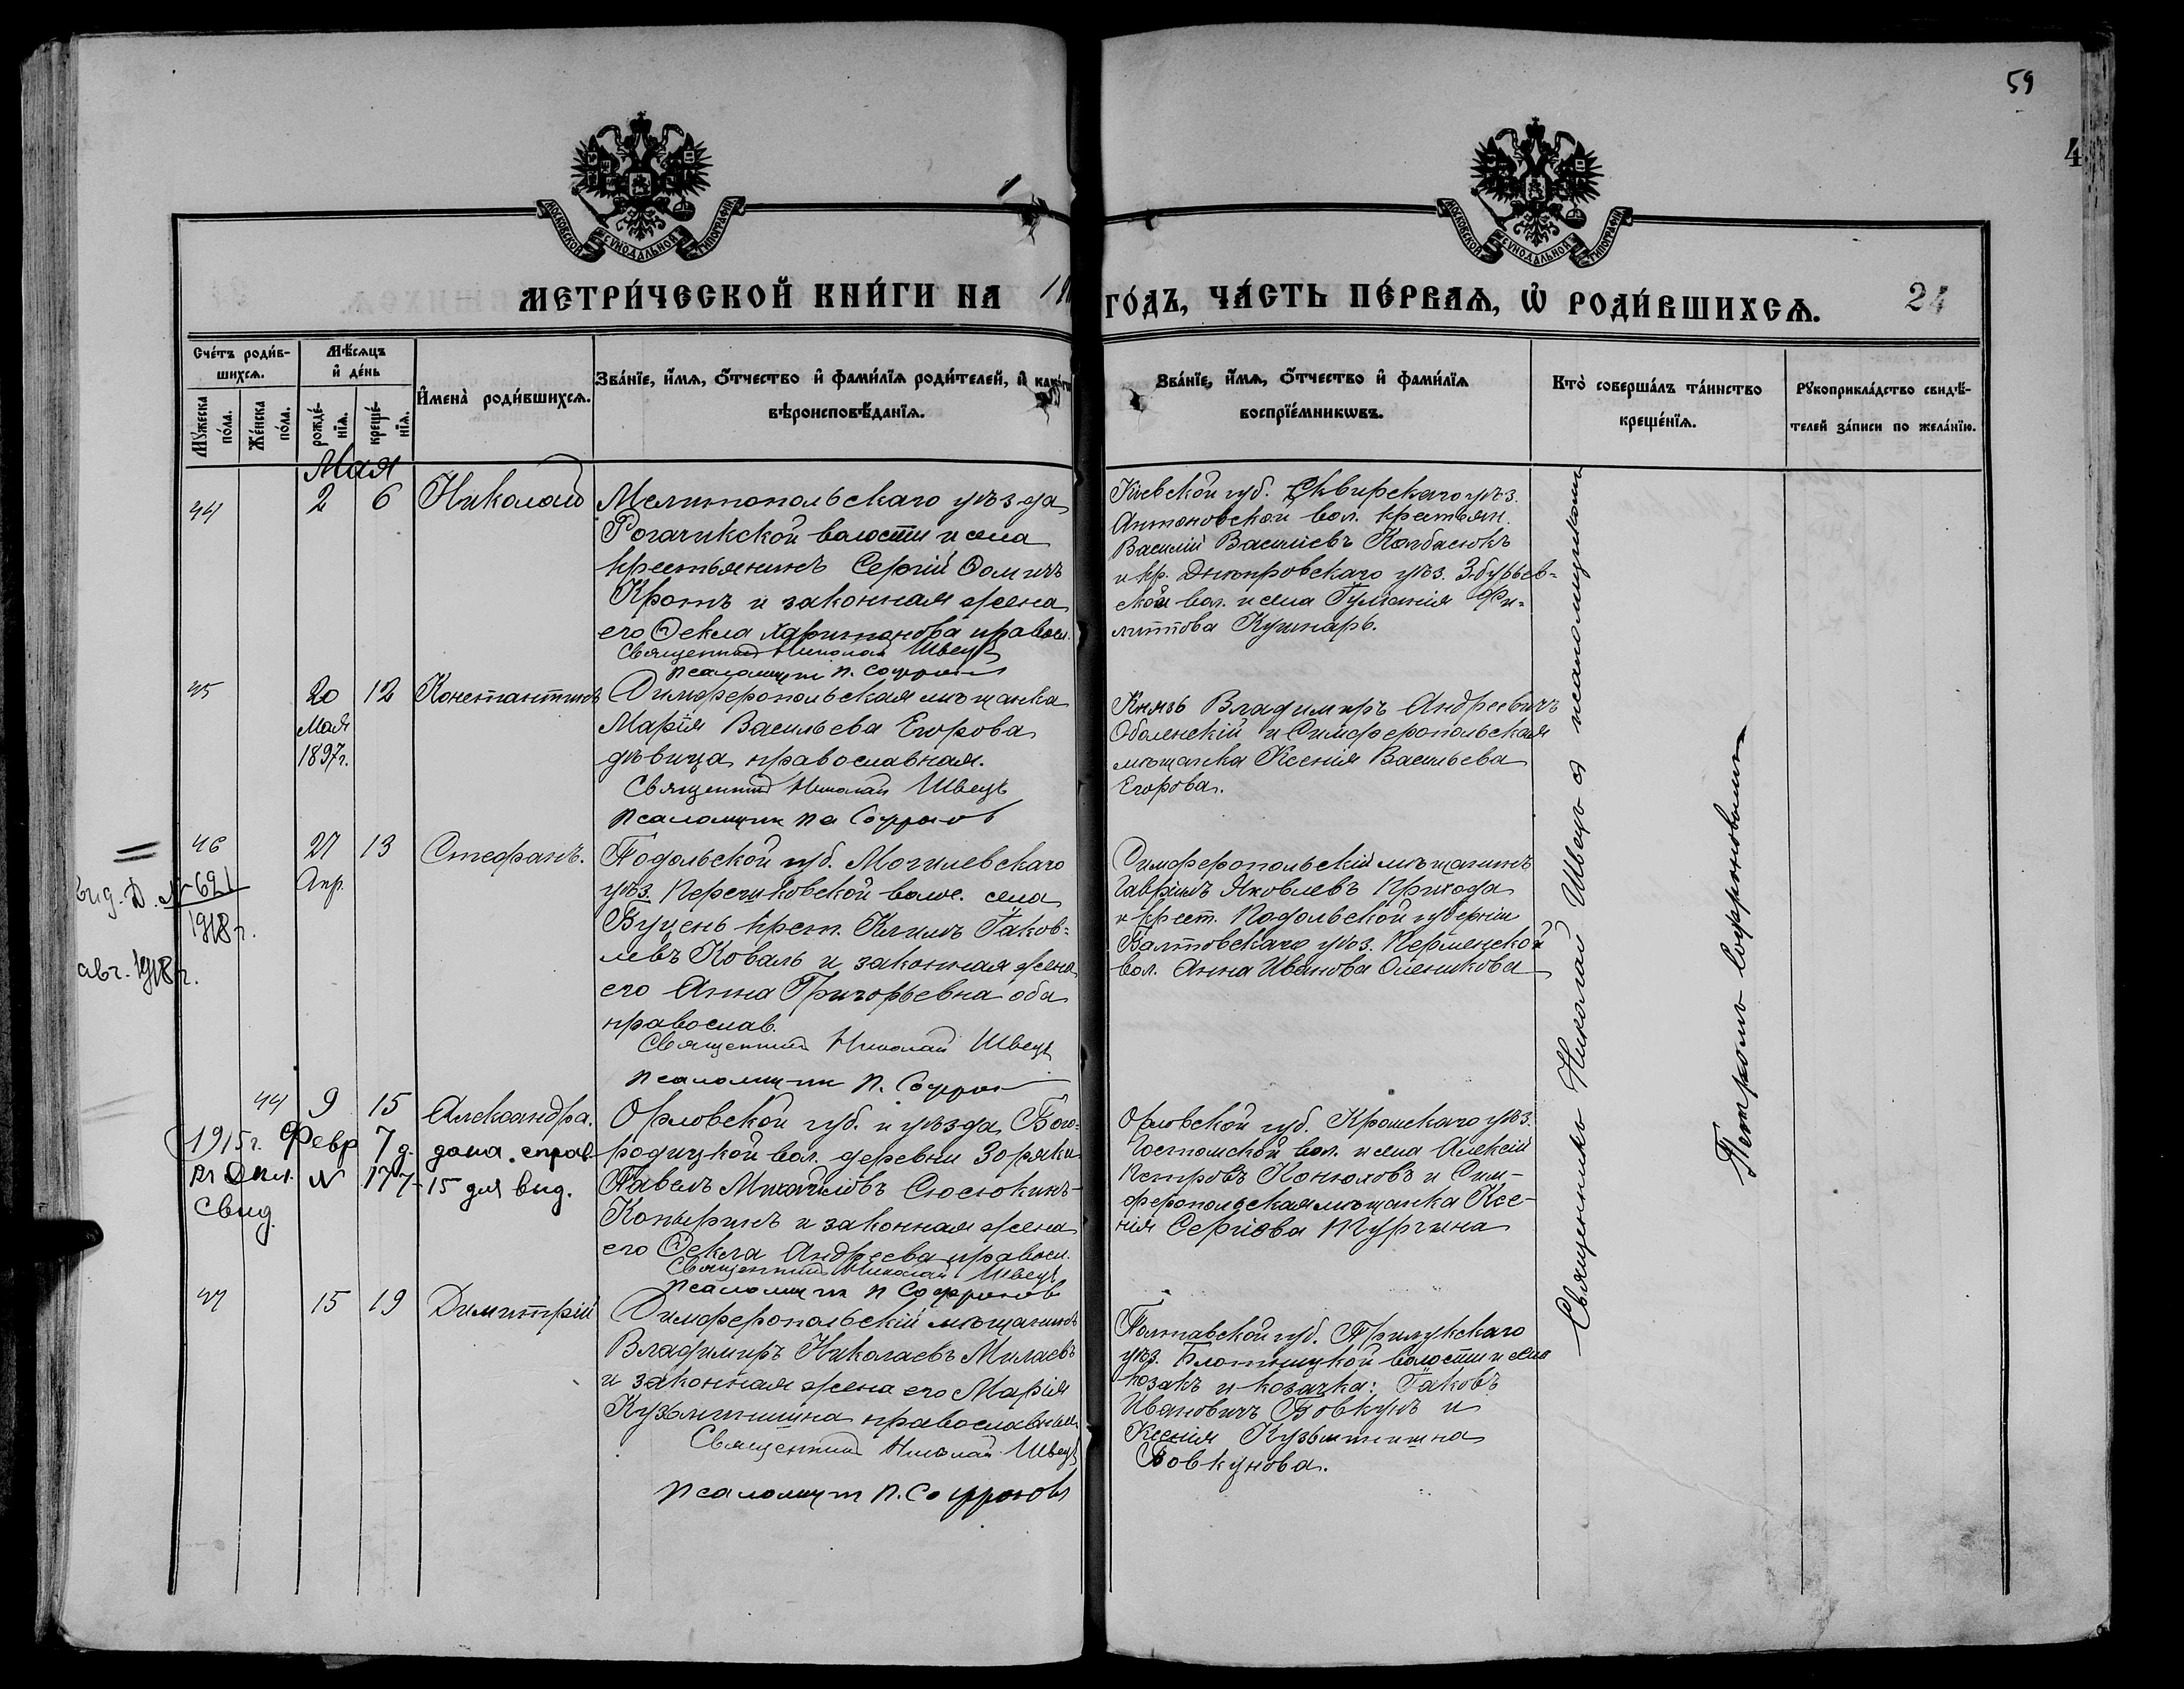 59
4
МОСКОВСКОЙ СУНОДАЛЬНОЙ ТИПОГРАФІИ
МОСКОВСКОЙ СУНОДАЛЬНОЙ ТИПОГРАФІИ
МЕТРИ́ЧЕСКОЙ КНИ́ГИ НА
ГО́ДЪ, ЧА́СТЬ ПЕ́РВАЯ, Ѡ РОДИ́ВШИХСЯ.
24
Сче́тъ роди́в-
шихся.
Му́жеска по́ла.
Же́нска по́ла.
Мѣ́сяцъ
и де́нь
рожде́-
нїя.
креще́-
нїя.
Имена̀ роди́вшихся.
Зва́нїе, и́мя, о́тчество и фами́лїя роди́телей, и
вѣроисповѣ́данїя.
Зва́нїе, и́мя, о́тчество и фами́лїя
воспрїе́мникѡвъ.
Кто̀ соверша́лъ та́инство
креще́нїя.
Рꙋкоприкла́дство свидѣ́-
телей за́писи по жела́нїю.
Мая
44
2 6 Николай
Мелитопольскаго уѣзда
Рогачикской волости и села
крестьянинъ Сергій Ѳомичъ
Кротъ и законная жена
его Ѳекла Харитонова правосл.
Священникъ Николай Швецъ
псаломщик П. Софронов
Кіевской губ. Сквирскаго уѣз.
Антоновской вол. крестьян.
Василій Васильевъ Колбасюкъ
и кр. Днѣпровскаго уѣз. Збурьев-
ской вол. и села Гулианія Фи-
липпова Кушнарь.
45
20 12 Константинъ
Мая
1897 г.
Симферопольская мѣщанка
Марія Васильева Егорова
дѣвица православная.
Священникъ Николай Швецъ
псаломщик Па Софронов
Князь Владимиръ Андреевичъ
Оболенскій и Симферопольская
мѣщанка Ксенія Васильева
Егорова.
46
27 13 Стефанъ.
Апр.
выд. Д. № 621
1918 г.
авг. 1918 г.
Подольской губ. Могилевскаго
уѣз. волос. села
крест. Климъ Іаков-
левъ Коваль и законная жена
его Анна Григорьевна оба
православ.
Священникъ Николай Швецъ
псаломщик П. Софрон
Симферопольскій мѣщанинъ
Гавріилъ Яковлевъ Прихода
и крест. Подольской губерніи
Балтовскаго уѣз.
вол. Анна Иванова Олейникова
44 9 15 Александра.
1915 г. Февр 7 д. дана справ
№ 177-15 для выд.
свид.
Орловской губ. и уѣзда Бого-
родицкой вол. деревни
Павелъ Михайловъ Сюсюкинъ-
Копыринъ и законная жена
его Ѳекла Андреева правосл.
Священникъ Николай Швецъ
псаломщик П Софронов
Орловской губ. Кромскаго уѣз.
Гостомской вол. и села Алексій
Петровъ Конюховъ и Сим-
феропольская мѣщанка Ксе-
нія Сергіева
47
15 19 Димитрій
Симферопольскій мѣщанинъ
Владимиръ Николаевъ Милаевъ
и законная жена его Марія
Кузьминишна православные
Священникъ Николай Швецъ
псаломщик П. Софронов
Полтавской губ. Прилукскаго
уѣз. волости и села
козакъ и козачка: Іаковъ
Ивановичъ Бовкунъ и
Ксенія Кузьминишна
Бовкунова.
Священникъ Николай Швецъ с псаломщикомъ
Петромъ Софроновымъ